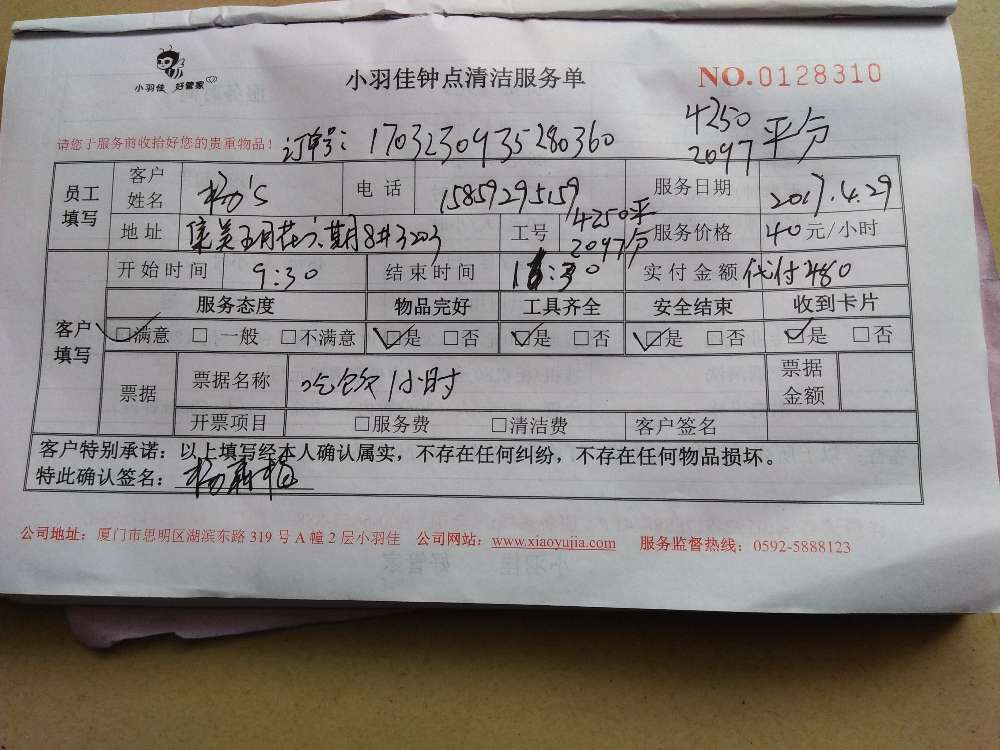 小羽佳 好管家
小羽佳钟点清洁服务单
NO.0128310
4250
2097 平分
请您于服务前收拾好您的贵重物品！ 订单号：1703230935280360
员工填写 客户姓名 杨's 电话 15859295159 服务日期 2017.4.29
地址 集美 期8#3203 工号 4250平 2097分 服务价格 40元/小时
客户填写 开始时间 9:30 结束时间 :30 实付金额 代付480
服务态度 物品完好 工具齐全 安全结束 收到卡片
☑满意 □一般 □不满意 ☑是 □否 ☑是 □否 ☑是 □否 ☑是 □否
票据 票据名称 吃饭1小时 票据金额
开票项目 □服务费 □清洁费 客户签名
客户特别承诺：以上填写经本人确认属实，不存在任何纠纷，不存在任何物品损坏。
特此确认签名： 杨
公司地址：厦门市思明区湖滨东路 319 号 A 幢 2 层小羽佳 公司网站：www.xiaoyujia.com 服务监督热线：0592-5888123